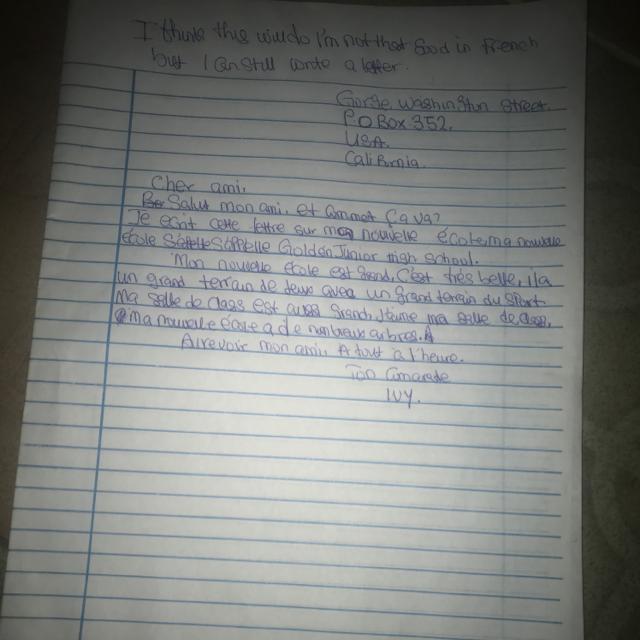 I think this will do I'm not that Good in French
but I can still write a letter.
Gorge Washington Street
P.O Box 352.
USA.
California
Cher ami,
Salut mon ami, et Commet Ca va?
Je ecit cette lettre sur mon nouvelle école, ma nouvelle
école S'appelle Golden Junior High school.
Mon nouvelle école est Grand, C'est très belle, il a
un grand terrain de Jeux avec un grand terrain du Sport
Ma salle de class est aussi Grand, J'aime ma salle de class,
Ma nouvelle école a de nombreux arbres.
Au revoir mon ami. A tout à l'heure.
Ton Camarade
IVY.